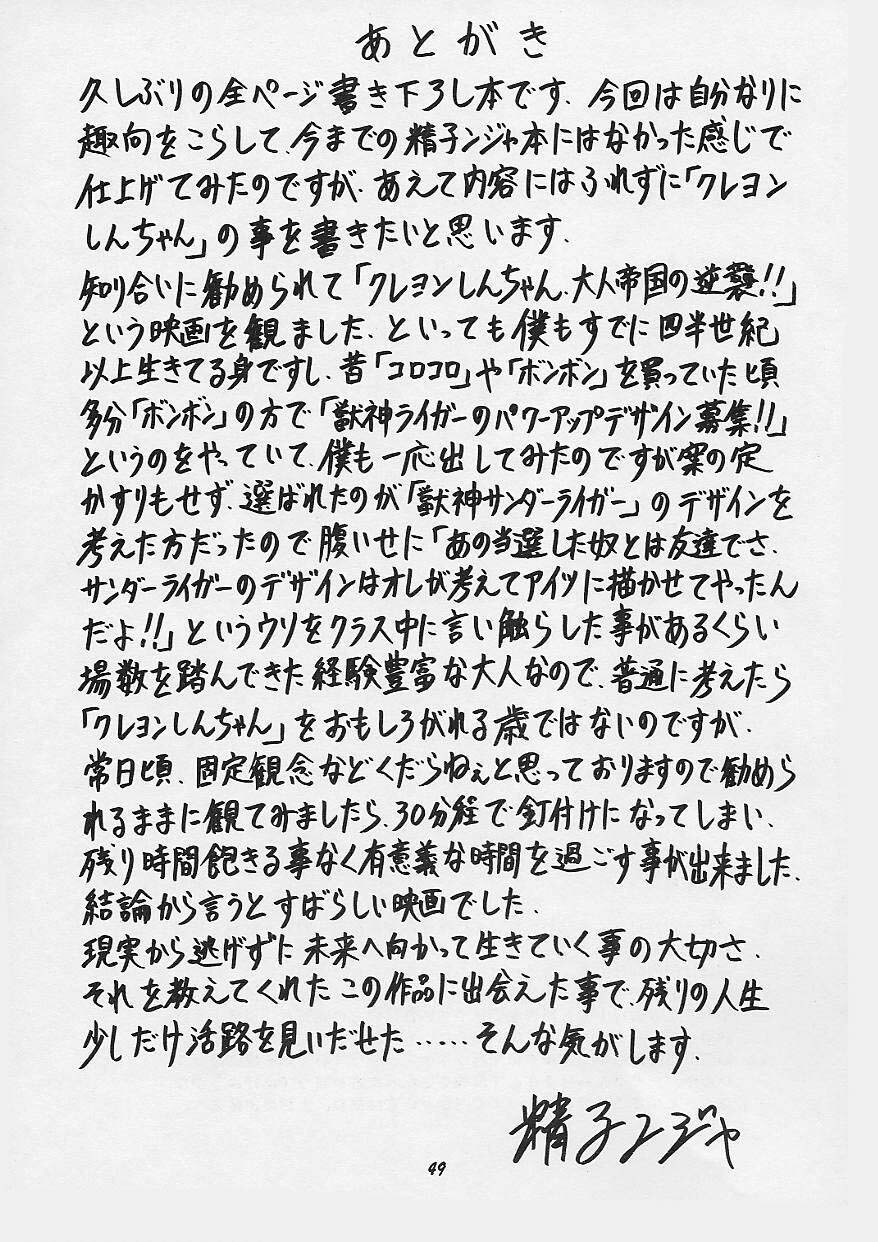 あとがき
久しぶりの全ページ書き下ろし本です、今回は自分なりに
趣向をこらして、今までの精子ンジャ本にはなかった感じで
仕上げてみたのですが、あえて内容にはふれずに「クレヨン
しんちゃん」の事を書きたいと思います、
知り合いに勧められて「クレヨンしんちゃん、大人帝国の逆襲!!」
という映画を観ました、といっても僕もすでに四半世紀
以上生きてる身ですし、昔「コロコロ」や「ボンボン」を買っていた頃
多分「ボンボン」の方で「獣神ライガーのパワーアップデザイン募集!!」
というのをやっていて、僕も一応出してみたのですが案の定
かすりもせず、選ばれたのが「獣神サンダーライガー」のデザインを
考えた方だったので腹いせに「あの当選した奴とは友達でさ、
サンダーライガーのデザインはオレが考えてアイツに描かせてやったん
だよ!!」というウソをクラス中に言い触らした事があるくらい
場数を踏んできた経験豊富な大人なので、普通に考えたら
「クレヨンしんちゃん」をおもしろがれる歳ではないのですが、
常日頃、固定観念などくだらねぇと思っておりますので勧めら
れるままに観てみましたら、30分程で釘付けになってしまい、
残り時間飽きる事なく有意義な時間を過ごす事が出来ました、
結論から言うとすばらしい映画でした、
現実から逃げずに未来へ向かって生きていく事の大切さ、
それを教えてくれたこの作品に出会えた事で、残りの人生
少しだけ活路を見いだせた……そんな気がします、
精子ンジャ
49